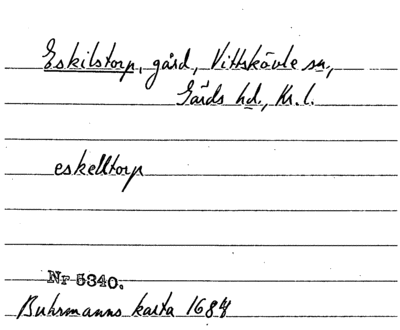 Eskilstorp, gård, Vittskövle sn,
Gärds hd., Kr. l.
eskelltorp
Nr 5340.
Buhrmanns karta 1684